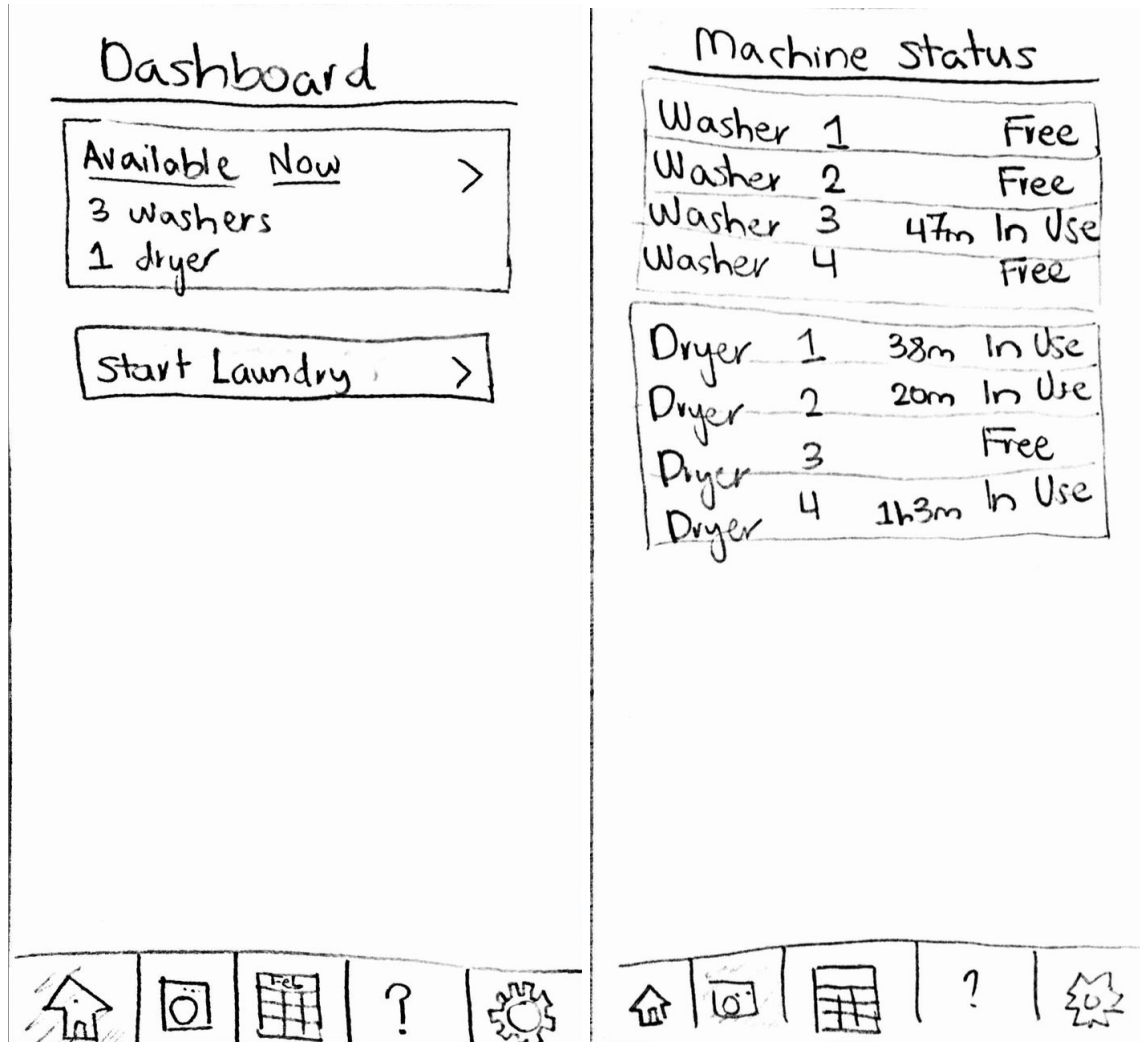 Dashboard
Available Now >
3 washers
1 dryer
Start Laundry >
Feb
?
Machine Status
Washer 1 Free
Washer 2 Free
Washer 3 47m In Use
Washer 4 Free
Dryer 1 38m In Use
Dryer 2 20m In Use
Dryer 3 Free
Dryer 4 1h3m In Use
?